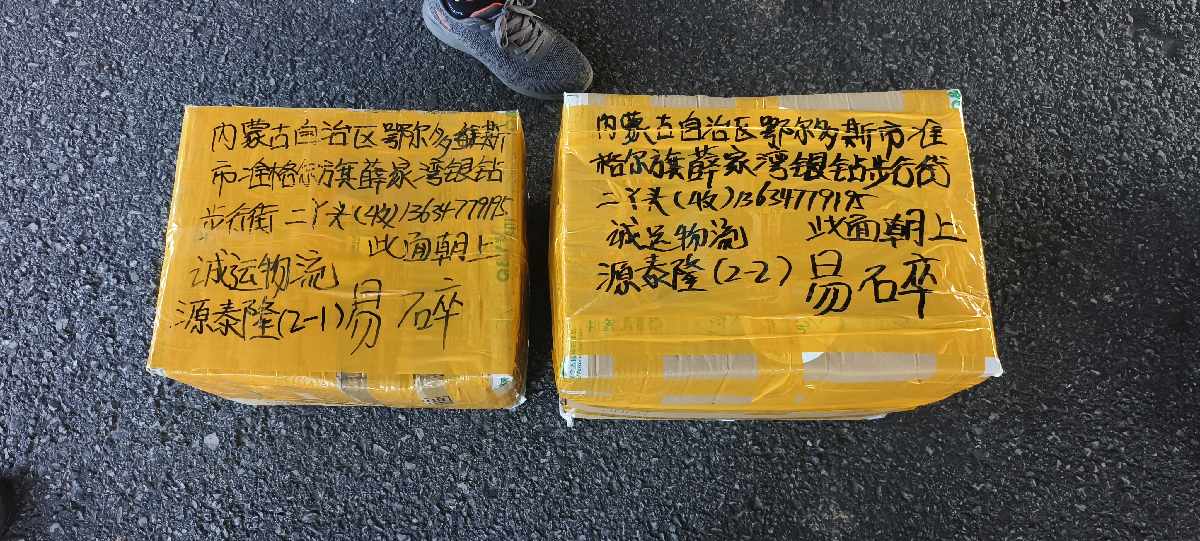 内蒙古自治区鄂尔多斯
市准格尔旗薛家湾银钻
步行街二丫头(收)13634779195
此面朝上
诚运物流
源泰隆(2-1)易碎
内蒙古自治区鄂尔多斯市准
格尔旗薛家湾银钻步行街
二丫头(收)13634779195
诚运物流 此面朝上
源泰隆(2-2)易碎